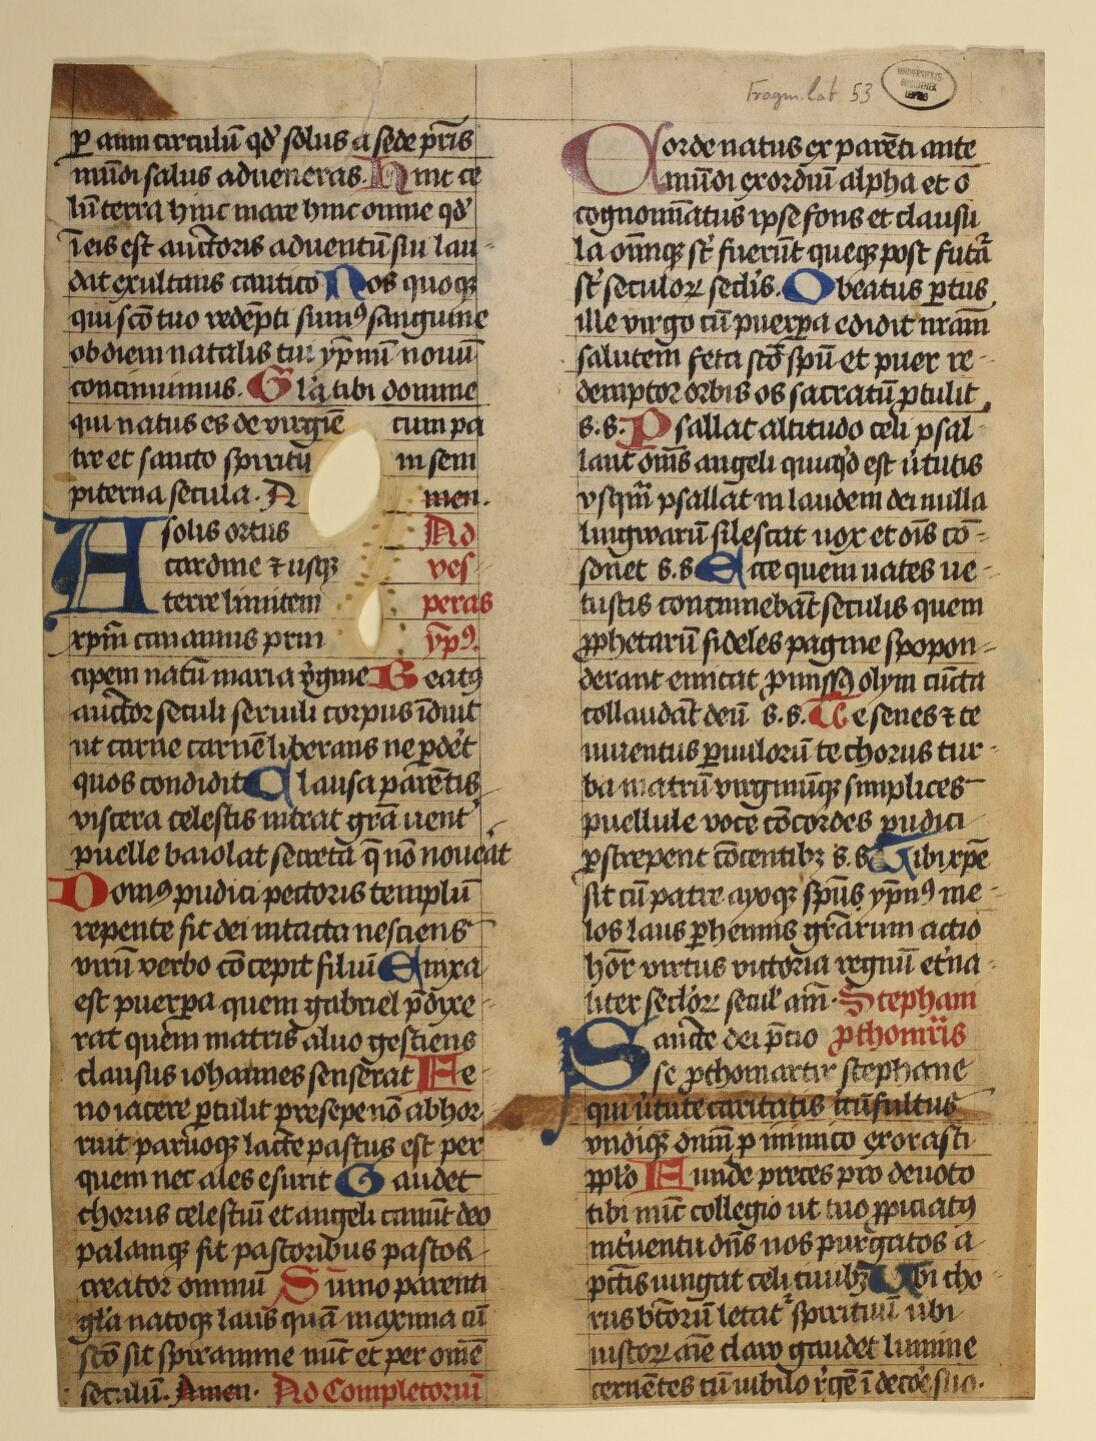 Fragm. lat. 53
UNIVERSITÄTS-
BIBLIOTHEK
LEIPZIG
ꝑ anni circulū qđ solus a sede pr̄is
mūdi salus adueneras. Hunc ce
lū terra hunc mare hunc omne qđ
ī eis est auctoris aduentū sui lau-
dat exultans cantico Nos quoqꝫ
qui scō tuo redēpti sumꝰ sanguine
ob diem natalis tui ypmū nouū
concinimus. Glā tibi domine
qui natus es de virgīe cum pa
tre et sancto spiritu in sem
piterna secula. A men.
A solis ortus Ad
cardine ⁊ usqꝫ ves-
terre limitem peras
xpm̄ canamus prin ypꝰ.
cipem natū maria v̓gine Beatꝰ
auctor seculi seruili corpus īduit
ut carne carnē liberans ne ꝑdet
quos condidit Clausa parētis
viscera celestis intrat grā uent̓
puelle baiolat secreta q̄ nō nouat̓
Domꝰ pudici pectoris templū
repente fit dei intacta nesciens
virū verbo cōcepit filiū Enixa
est puerꝑa quem gabriel p̄dixe-
rat quem matris aluo gestiens
clausus iohannes senserat Fe-
no iacere ꝑtulit presepe nō abhor
ruit paruoqꝫ lacte pastus est per
quem nec ales esurit Gaudet
chorus celestiū et angeli canūt deo
palamqꝫ fit pastoribus pastor
creator omniū Sumo parenti
glā natoqꝫ laus quā maxima cū
scō sit spiramine nūc et per omē
seculū. Amen. Ad Completoriū
Corde natus ex parēti ante
mūdi exordiū alpha et o
cognomiatus ipse fons et clausu
la omīqꝫ st̄ fuerūt queqꝫ post futā
st̄ seculoꝝ seclis. O beatus ꝑtus
ille virgo cū puerꝑa edidit nr̄am
salutem feta scō spū et puer re-
demptor orbis os sacratū ꝓtulit
s. s. Psallat altitudo celi psal
lant om̄s angeli quicqͥd est v̓tutis
vsqm̄ psallat in laudem dei nulla
lingwarū silescat uox et oīs cō-
sonet s. s Ecce quem uates ve-
tustis concinebāt seculis quem
ꝓphetarū fideles pagine spopon-
derant emicat ꝓmissꝰ olym cūcta
collaudāt deū s. s. Te senes ⁊ te
iuuentus paruulorū te chorus tur-
ba matrū virginūqꝫ simplices
puellule voce cōcordes pudici
ꝑstrepent cōcentibꝫ s. s Tibi xpe
sit cū patre agyoqꝫ spūs ypnꝰ me-
los laus ꝑhennis gr̄arum actio
honor virtus victoria regnū et̓na-
liter secloꝝ secula am̄. Stephani
Sancte dei p̄cio ꝓthomr̄is
se ꝓthomartir stephane
qui v̓tute caritatis cīcūfultus
vndiqꝫ dnm̄ ꝓ inimico exorasti
pplo Funde preces pro deuoto
tibi nūc collegio ut tuo ꝓpiciatꝰ
int̓uentu dn̄s nos purgatos a
pctis iungat celi ciuibꝫ Ubi cho-
rus btorū letatͬ spirituū ubi
iustoꝝ aīe claro gaudet lumine
cernētes cū iubilo rēgē ī decoe suo.